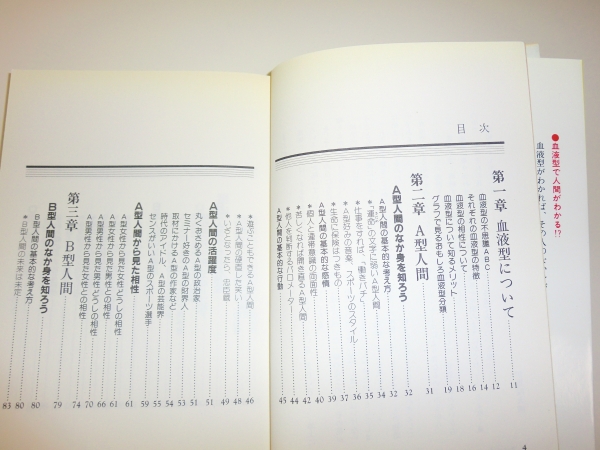 ●血液型で人間がわかる!?
目次
第一章 血液型について 11
血液型の不思議ABC 12
それぞれの血液型の特徴 14
血液型の相性について 16
血液型について知るメリット 18
グラフで見るおもしろ血液型分類 19
第二章 A型人間 31
A型人間のなか身を知ろう 32
A型人間の基本的な考え方 32
*「運命」の文字に弱いA型人間 34
*仕事をすれば、「働きバチ」 35
*A型好みの音楽、スポーツのスタイル 36
*生命に保険はつきもの 37
*個人と連帯意識の両面性 39
A型人間の基本的な感情 40
*苦しくなれば開き直るA型人間 42
*他人を詮索するバロメーター 44
A型人間の基本的な行動 45
*遊ぶこともできるA型人間 46
*A型人間の硬直した笑い 48
*いざとなったら、忠臣蔵 49
A型人間の活躍度 51
丸くおさめるA型の政治家 51
セミナー好きのA型の財界人 53
取材にかけるA型の作家など 54
時代のアイドル、A型の芸能界 55
センスがいいA型のスポーツ選手 59
A型人間から見た相性 61
A型女性から見た女性どうしの相性 61
A型女性から見た男性との相性 66
A型男性から見た男性どうしの相性 70
A型男性から見た女性との相性 74
第三章 B型人間 79
B型人間のなか身を知ろう 80
B型人間の基本的な考え方 80
*B型人間の未来は未定 83
4